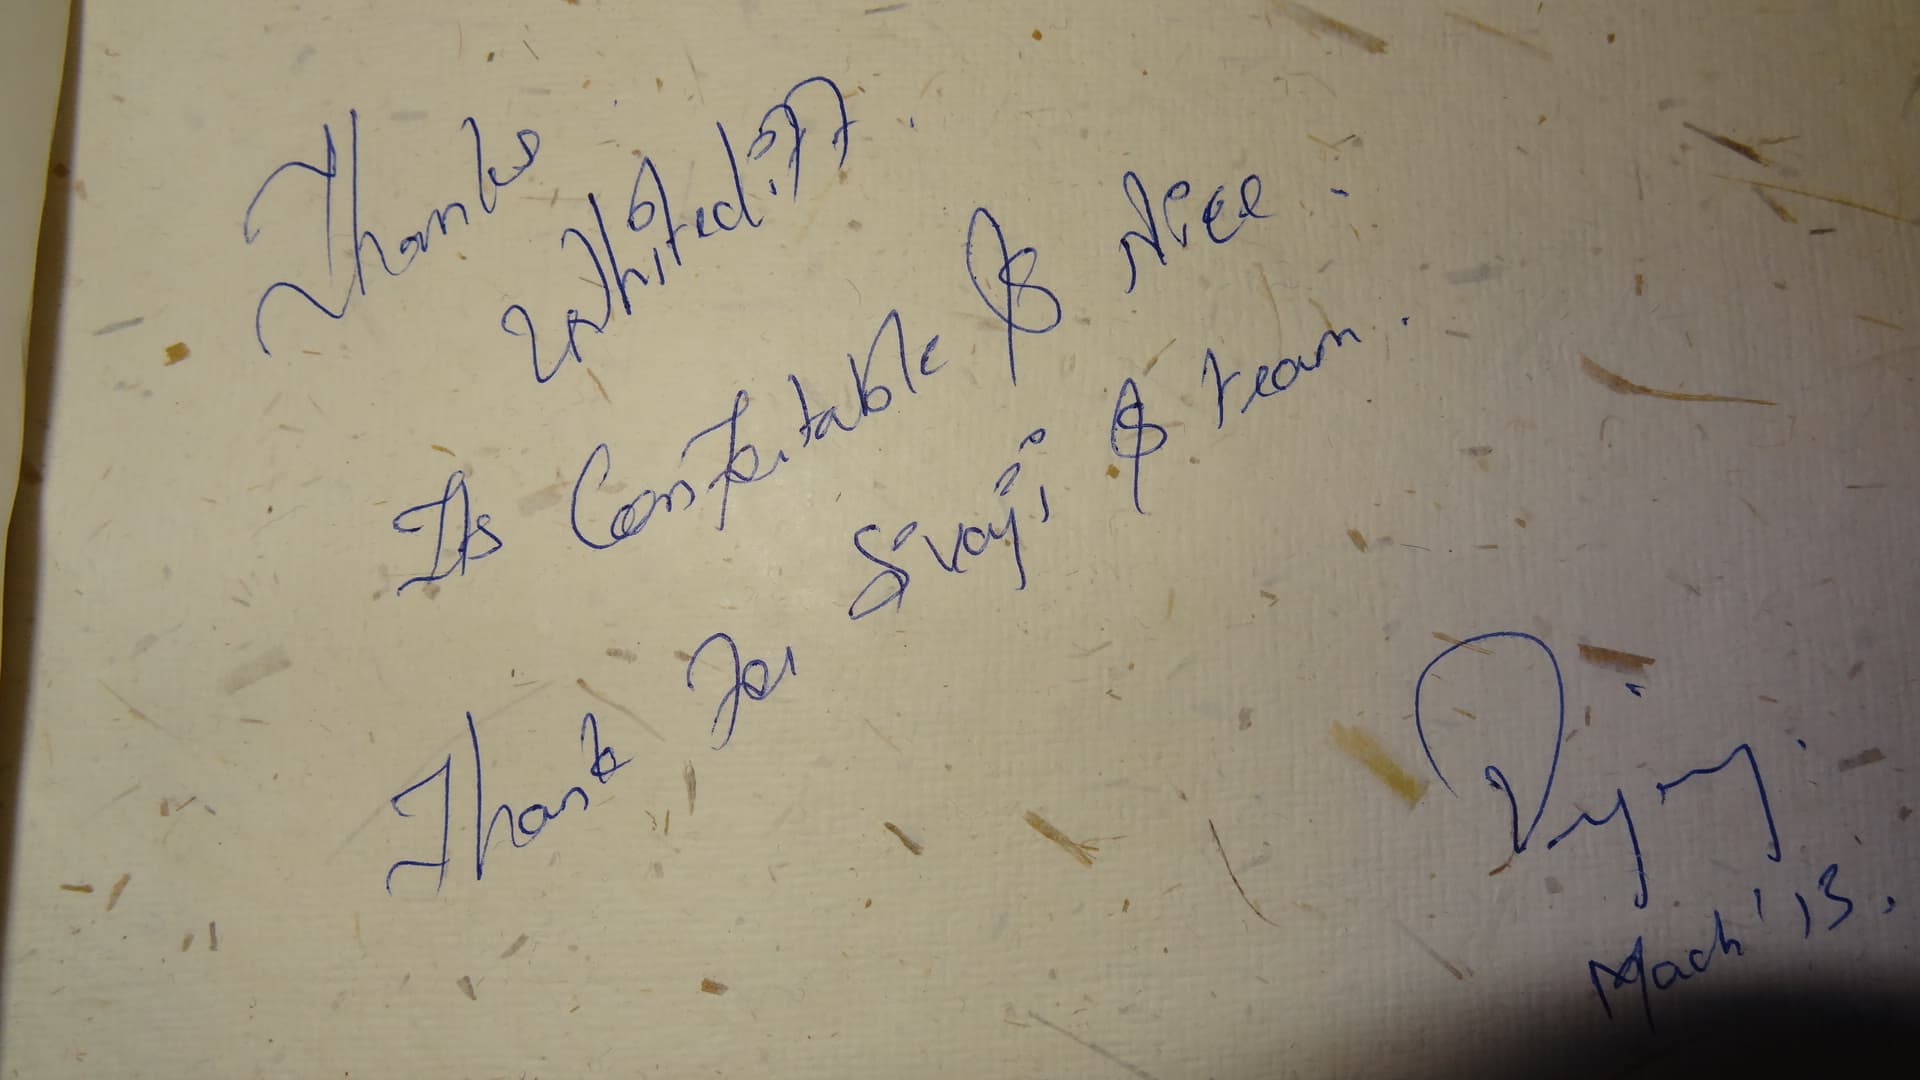 Thanks
Whitecliff.
Its Comfortable & Nice.
Thank for Sivaji & team.
Vijay.
March '13.